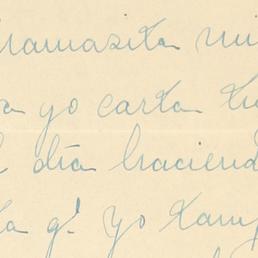 mamasita mi
a yo carta tu
l día haciend
ta q! yo tam